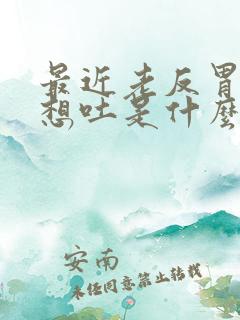 最近老反胃
想吐是什麽
安南
未经同意禁止转载